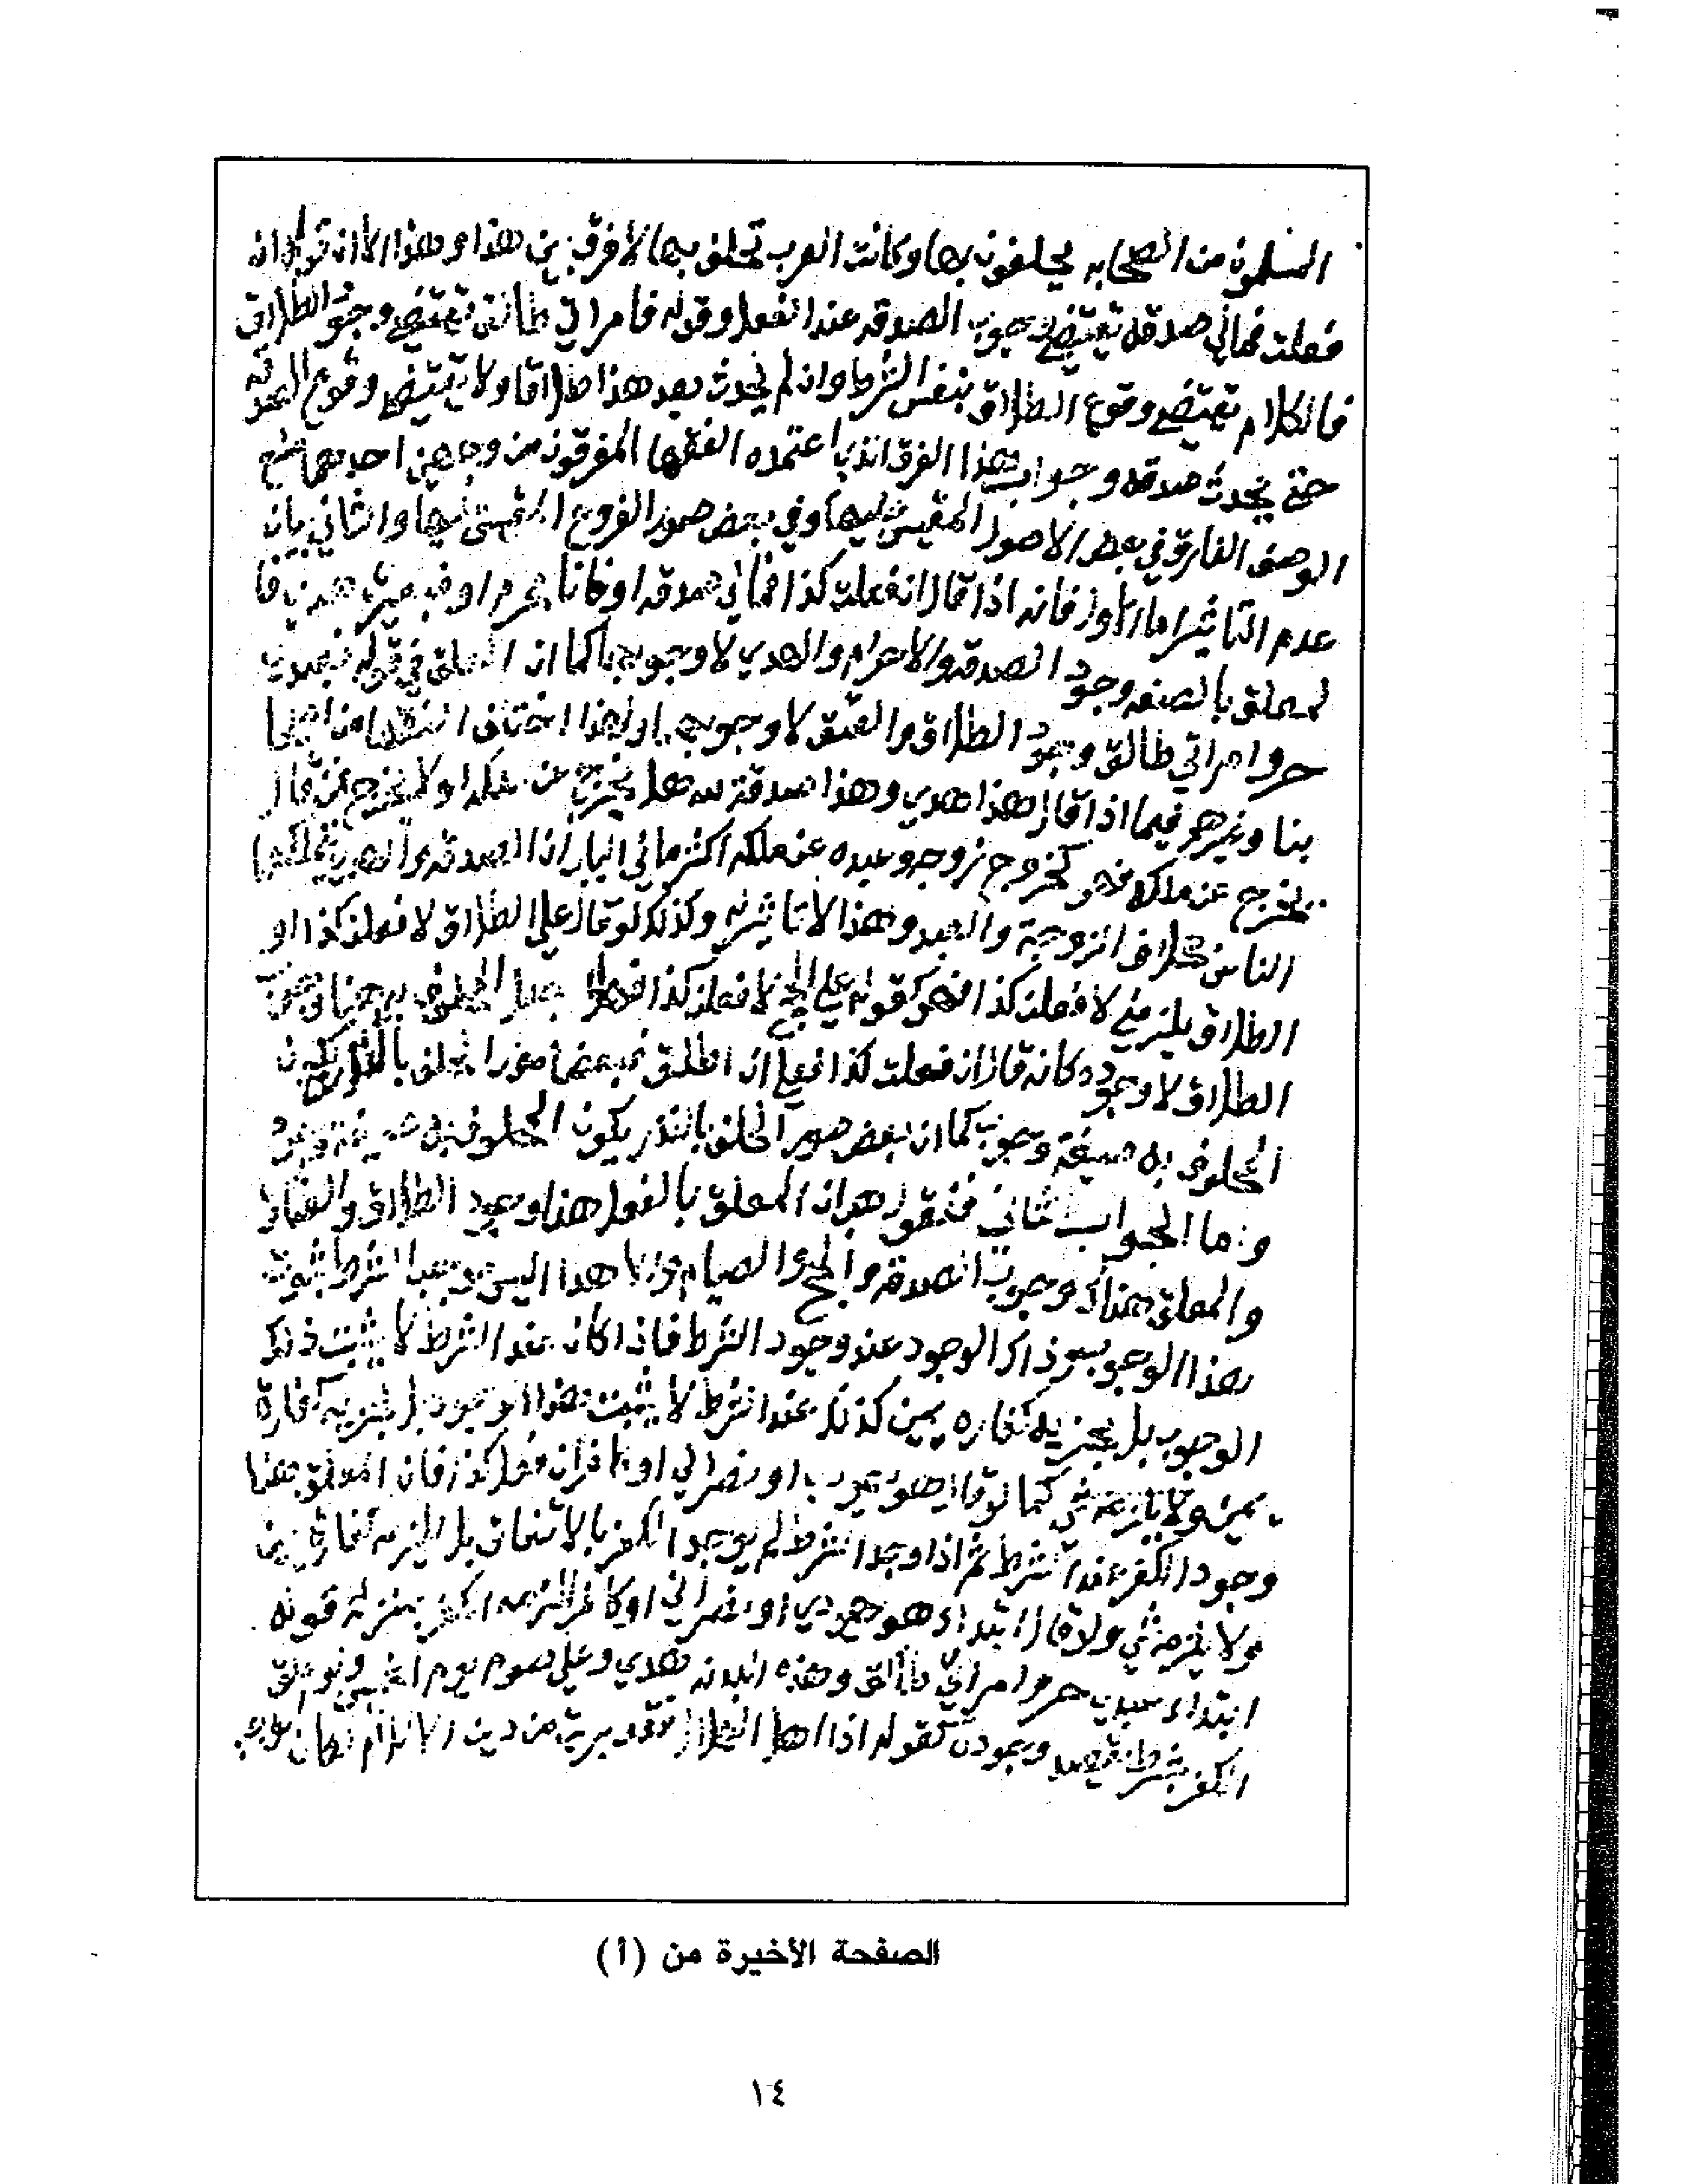 المسلمون من الصحابه يحلفون بها وكانت العرب تحلف بها لا فرق بين هذا وهذا الا ان قوله ان
فعلت فمالي صدقه تقتضي وجوب الصدقه عند الفعل وقوله فامراتي طالق تقتضي وجود الطلاق
فالكلام تقتضي وقوع الطلاق بنفس الشرط وان لم يحدث بعد هذا طلاقا ولا تقتضي وقوع الصدقه
حتى يحدث صدقه وجواب هذا الفرق الذي اعتمده الفقها المفرقون من وجهين احدهما منع
الوصف الفارق في بعض الاصول المقيس عليها وفي بعض صور الفروع المقيس عليها والثاني بيان
عدم التاثير اما الاول فانه اذا قال ان فعلت كذا فمالي صدقه او فانا محرم او فبعيري هدي فا
لمعلق بالصفه وجود الصدقه والاحرام والهدي لا وجوبها كما ان المعلق في قوله فعبدي
حر وامراتي طالق وجود الطلاق والعتق لا وجوبهما ولهذا اختلف الفقها من اصحا
بنا وغيرهم فيما اذا قال هذا هدي وهذا صدقة لله هل يخرج عن ملكه او لا يخرج فمن قال
يخرج عن ملكه فهو كخروج زوجه وعبده عن ملكه اكثر ما في الباب ان الصدقه والهدي يتملكها
الناس بخلاف الزوجة والعبد وهذا لا تاثير له وكذلك لو قال علي الطلاق لافعلن كذا او
الطلاق يلزمني لافعلن كذا فهو كقوله علي الحج لافعلن كذا فهلا جعل المحلوف به هنا وجوب
الطلاق لا وجوده كانه قال ان فعلت كذا فعلي ان اطلق فبعض صور الحلف بالطلاق يكون
المحلوف به صيغة وجوب كما ان بعض صور الحلف بالنذر يكون المحلوف به صيغة وجود
واما الجواب الثاني فنقول هب ان المعلق بالفعل هنا وجود الطلاق والعتاق
والمعلق هناك وجوب الصدقه والحج والصيام والاهدا اليس موجب الشرط ثبوت
هذا الوجوب بل ذاك الوجود عند وجود الشرط فاذا كان عند الشرط لا يثبت ذلك
الوجوب بل يجزيه كفاره يمين كذلك عند الشرط لا يثبت هذا الوجود بل يجزيه كفارة
يمين ولا يلزمه شي كما لو قال هو يهودي او نصراني او كافر ان فعل كذا فان المعلق هنا
وجود الكفر عند الشرط ثم اذا وجد الشرط لم يوجد الكفر بالاتفاق بل يلزمه كفارة يمين
او لا يلزمه شي ولو قال ابتداء هو يهودي او نصراني او كافر للزمه الكفر بمنزلة قوله
ابتداء عبدي حر وامراتي طالق وهذه البدنه هدي وعلي صوم يوم الخميس ولو علق
الكفر بشرط يقصد وجوده كقوله اذا اهل الهلال فقد برية من دين الاسلام لكان الواجب
الصفحة الأخيرة من (أ)
١٤